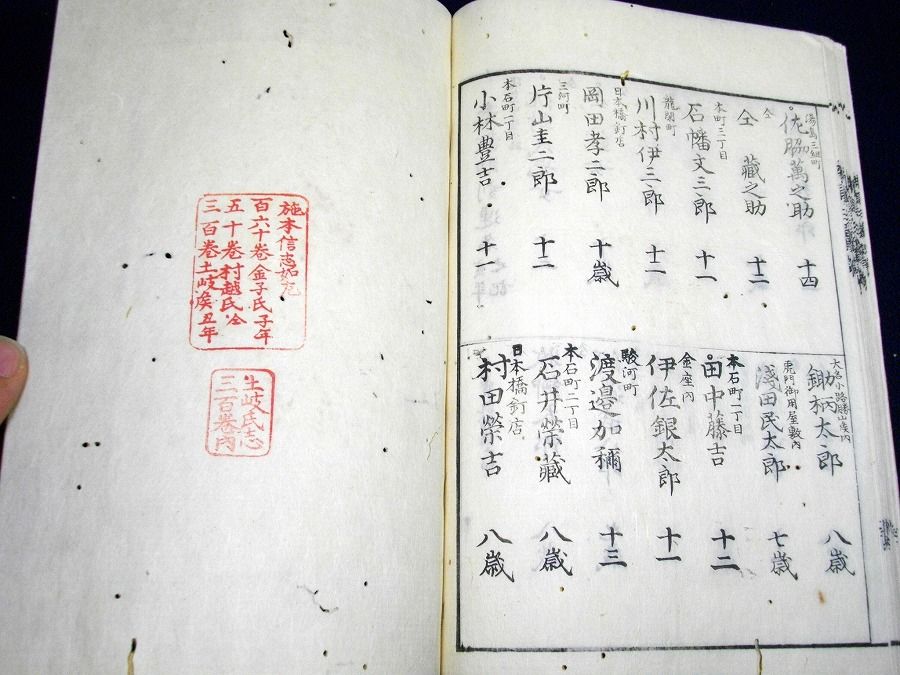 湯島三組町
佐脇萬之助 十四
仝
仝 藏之助 十二
本町三丁目
石幡文三郎 十一
龍閑町
川村伊三郎 十二
日本橋釘店
岡田孝二郎 十歳
三河町
片山圭二郎 十二
本石町二丁目
小林豊吉 十一
鋤柄太郎 八歳
虎門御用屋敷内
淺田民太郎 七歳
本石町一丁目
田中藤吉 十二
金座内
伊佐銀太郎 十一
駿河町
渡邉加彌 十三
本石町二丁目
石井榮藏 八歳
日本橋釘店
村田榮吉 八歳
施本信志姓
百六十巻金子氏子年
五十巻村越氏仝
三百巻土岐矦丑年
土岐氏志
三百巻内